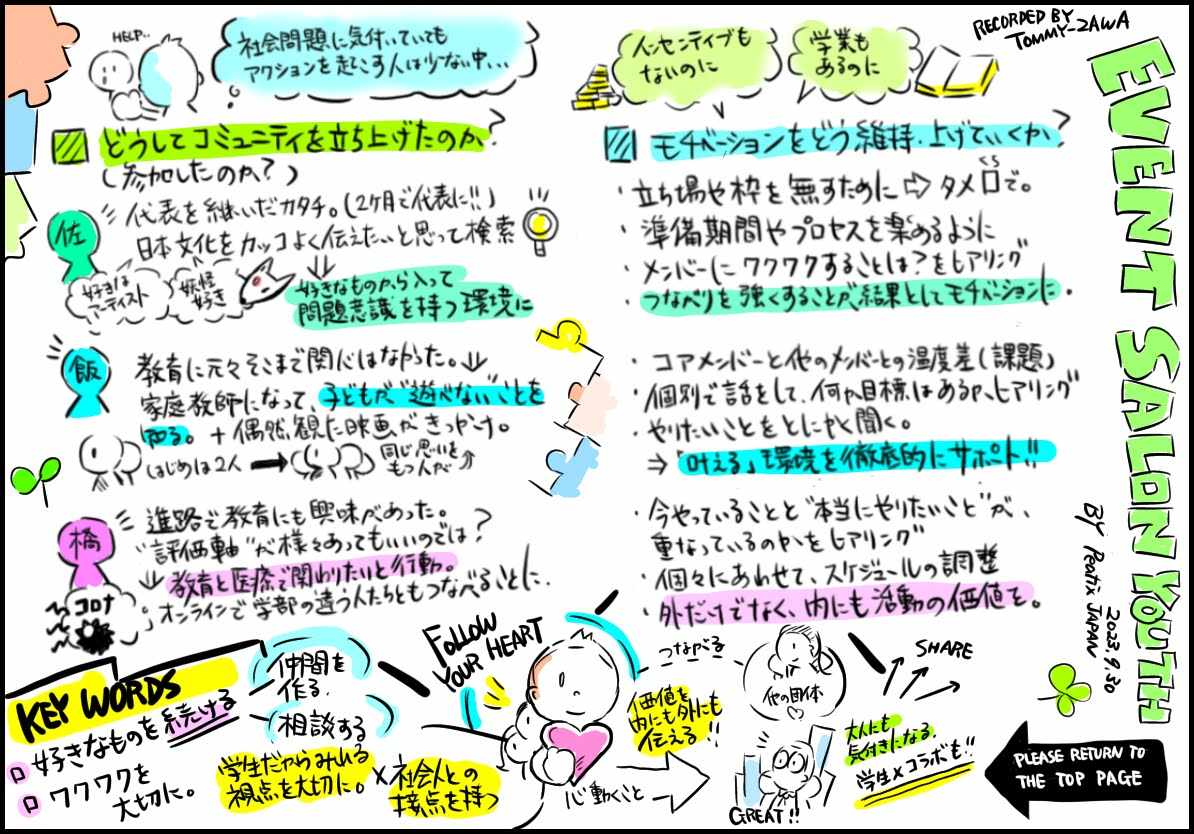 RECORDED BY
TOMMY-ZAWA
EVENT SALON YOUTH
BY Peatix JAPAN
2023.9.30
HELP..
社会問題に気付いていても
アクションを起こす人は少ない中...
どうしてコミュニティを立ち上げたのか?
(参加したのか?)
佐
代表を継いだカタチ。(2ヶ月で代表に!!)
日本文化をカッコよく伝えたいと思って検索
好きな
アーティスト
妖怪
好き
好きなものから入って
問題意識を持つ環境に
飯
教育に元々そこまで関心はなかった。↓
家庭教師になって、子どもが“遊べない”ことを
知る。+偶然観た映画がきっかけ。
はじめは2人
同じ思いを
もつ人が↑
橋
進路で教育にも興味があった。
“評価軸”が様々あってもいいのでは?
↓教育と医療で関わりたいと行動。
コロナ
オンラインで学部の違う人たちともつながることに.
インセンティブも
ないのに
学業も
あるのに
モチベーションをどう維持・上げていくか?
・立ち場や枠を無すために⇨タメ口で。
くち
・準備期間やプロセスを楽めるように
・メンバーにワクワクすることは?をヒアリング
・つながりを強くすることが、結果としてモチベーションに。
・コアメンバーと他のメンバーとの温度差(課題)
・個別で話をして、何か目標はあるか、ヒアリング
・やりたいことをとにかく聞く。
⇒「叶える」環境を徹底的にサポート!!
・今やっていることと“本当にやりたいこと”が、
重なっているのかをヒアリング
・個々にあわせて、スケジュールの調整
・外だけでなく、内にも活動の価値を。
KEY WORDS
好きなものを続ける
ワクワクを
大切に。
仲間を
作る.
相談する
学生だからみれる
視点を大切に。
×社会人との
接点を持つ
FOLLOW
YOUR HEART
価値を
内にも外にも
伝える!!
心動くこと
つながる
他の団体
GREAT!!
SHARE
大人にも
気付きになる.
学生×コラボも!!
PLEASE RETURN TO
THE TOP PAGE